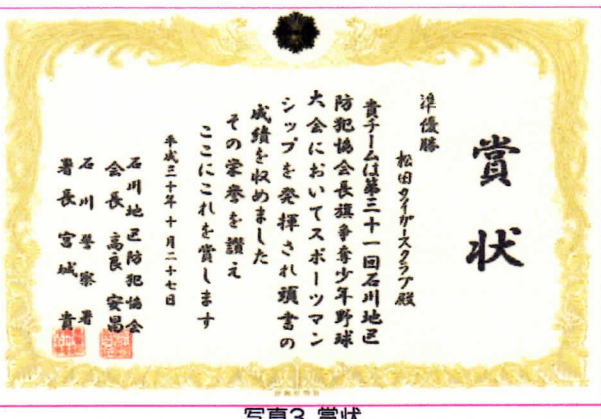 賞状
準優勝
松田タイガースクラブ殿
貴チームは第三十一回石川地区
防犯協会長旗争奪少年野球
大会においてスポーツマン
シップを発揮され頭書の
成績を収めました
その栄誉を讃え
ここにこれを賞します
平成三十年十月二十七日
石川地区防犯協会
会長 高良 安昌
石川警察署
署長 宮城 貴
写真3 賞状